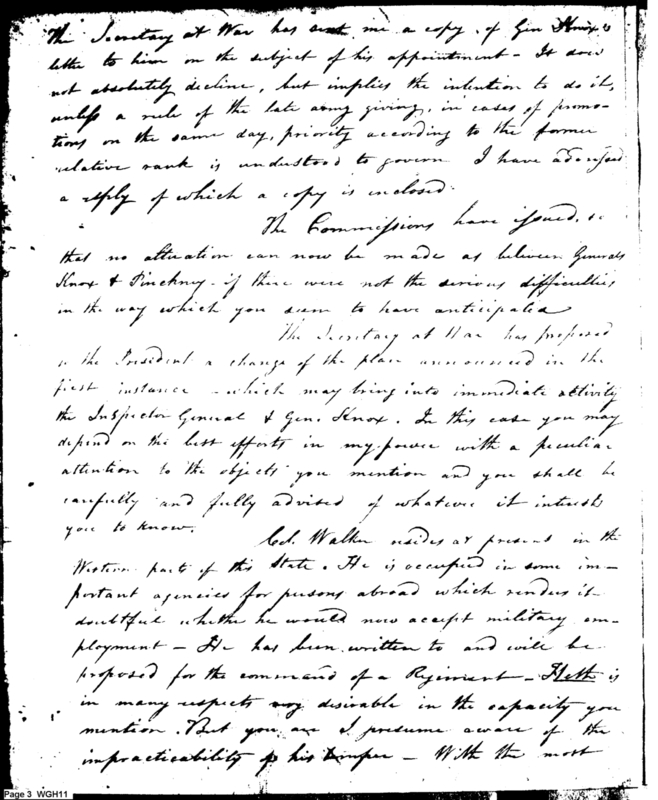 The Secretary at War has sent me a copy of Gen Knox's
letter to him on the subject of his appointment - It does
not absolutely decline, but implies the intention to do it,
unless a rule of the late army giving, in cases of promo-
tions on the same day, priority according to the former
relative rank is understood to govern I have addressed
a reply of which a copy is inclosed.
The Commissions have issued, so
that no alteration can now be made as between Generals
Knox & Pinckney - if there were not the serious difficulties
in the way which you seem to have anticipated
The Secretary at War has proposed
to the President a change of the plan announced in the
first instance - which may bring into immediate activity
the Inspector General & Gen. Knox. In this case you may
depend on the best efforts in my power with a peculiar
attention to the objects you mention and you shall be
carefully and fully advised of whatever it interests
you to know.
Col. Walker resides at present in the
Western parts of this State. He is occupied in some im-
portant agencies for persons abroad which renders it
doubtful whether he would now accept military em-
ployment - He has been written to and will be
proposed for the command of a Regiment - Heth is
in many respects very desirable in the capacity you
mention. But you are I presume aware of the
impracticability of his temper - With the most
Page 3 WGH11